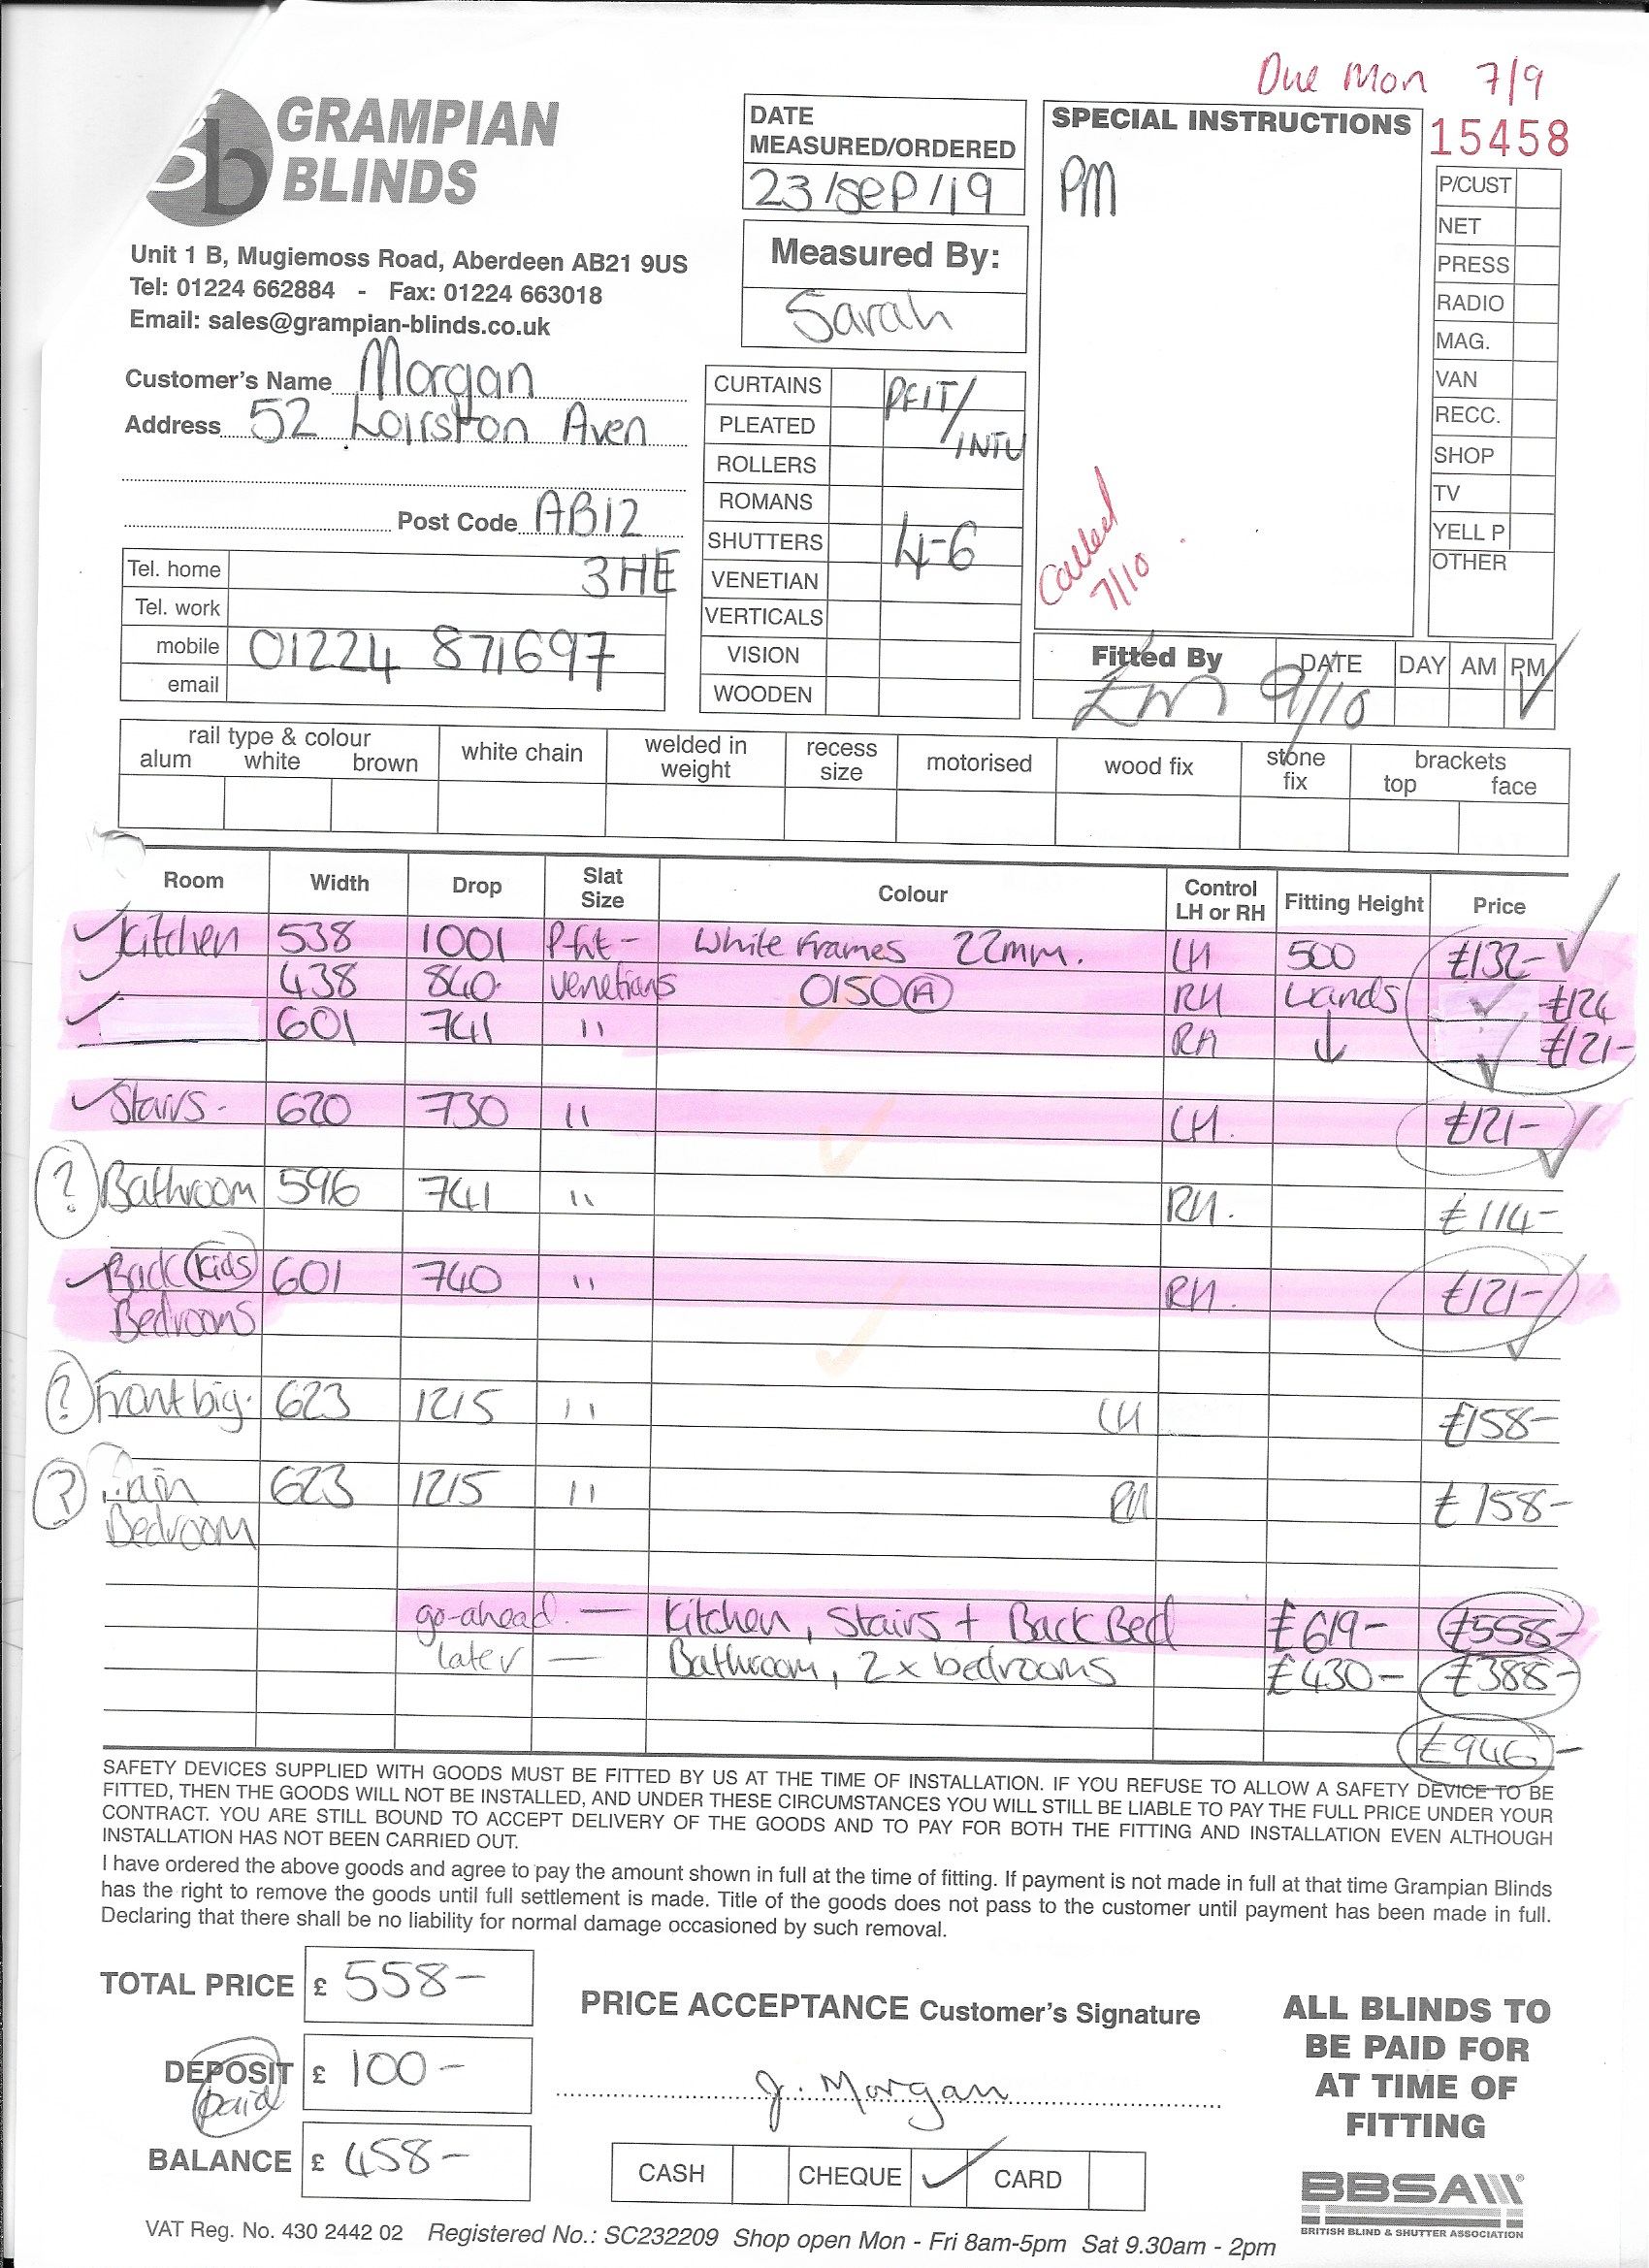 Due Mon 7/9
GRAMPIAN
BLINDS
Unit 1 B, Mugiemoss Road, Aberdeen AB21 9US
Tel: 01224 662884 - Fax: 01224 663018
Email: sales@grampian-blinds.co.uk
DATE
MEASURED/ORDERED
23/SEP/19
Measured By:
Sarah
SPECIAL INSTRUCTIONS
PM
Called
7/10
15458
P/CUST
NET
PRESS
RADIO
MAG.
VAN
RECC.
SHOP
TV
YELL P
OTHER
Customer's Name Morgan
Address 52 Loirston Aven
Post Code AB12
3HE
Tel. home
Tel. work
mobile 01224 871697
email
CURTAINS PFIT/
PLEATED INTU
ROLLERS
ROMANS
SHUTTERS 4-6
VENETIAN
VERTICALS
VISION
WOODEN
Fitted By DATE DAY AM PM
9/10
rail type & colour
alum white brown
white chain
welded in weight
recess size
motorised
wood fix
stone fix
brackets
top face
Room Width Drop Slat Size Colour Control LH or RH Fitting Height Price
Kitchen 538 1001 Pfit - White Frames 22mm. LH 500 £132-
438 840 venetians 0150 A RH Wands £124
601 741 " RH ↓ £121-
Stairs - 620 730 " LH. £121-
? Bathroom 596 741 " RH. £114-
Back kids 601 740 " RH. £121-
Bedrooms
? Front big. 623 1215 " LH £158-
? Main 623 1215 " RH £158-
Bedroom
go-ahead — Kitchen, Stairs + Back Bed £619- £558-
later — Bathroom, 2x bedrooms £430- £388-
£946-
SAFETY DEVICES SUPPLIED WITH GOODS MUST BE FITTED BY US AT THE TIME OF INSTALLATION. IF YOU REFUSE TO ALLOW A SAFETY DEVICE TO BE
FITTED, THEN THE GOODS WILL NOT BE INSTALLED, AND UNDER THESE CIRCUMSTANCES YOU WILL STILL BE LIABLE TO PAY THE FULL PRICE UNDER YOUR
CONTRACT. YOU ARE STILL BOUND TO ACCEPT DELIVERY OF THE GOODS AND TO PAY FOR BOTH THE FITTING AND INSTALLATION EVEN ALTHOUGH
INSTALLATION HAS NOT BEEN CARRIED OUT.
I have ordered the above goods and agree to pay the amount shown in full at the time of fitting. If payment is not made in full at that time Grampian Blinds
has the right to remove the goods until full settlement is made. Title of the goods does not pass to the customer until payment has been made in full.
Declaring that there shall be no liability for normal damage occasioned by such removal.
TOTAL PRICE £ 558-
DEPOSIT £ 100-
paid
BALANCE £ 458-
PRICE ACCEPTANCE Customer's Signature
J. Morgan
CASH CHEQUE ✓ CARD
ALL BLINDS TO
BE PAID FOR
AT TIME OF
FITTING
BBSA
BRITISH BLIND & SHUTTER ASSOCIATION
VAT Reg. No. 430 2442 02 Registered No.: SC232209 Shop open Mon - Fri 8am-5pm Sat 9.30am - 2pm